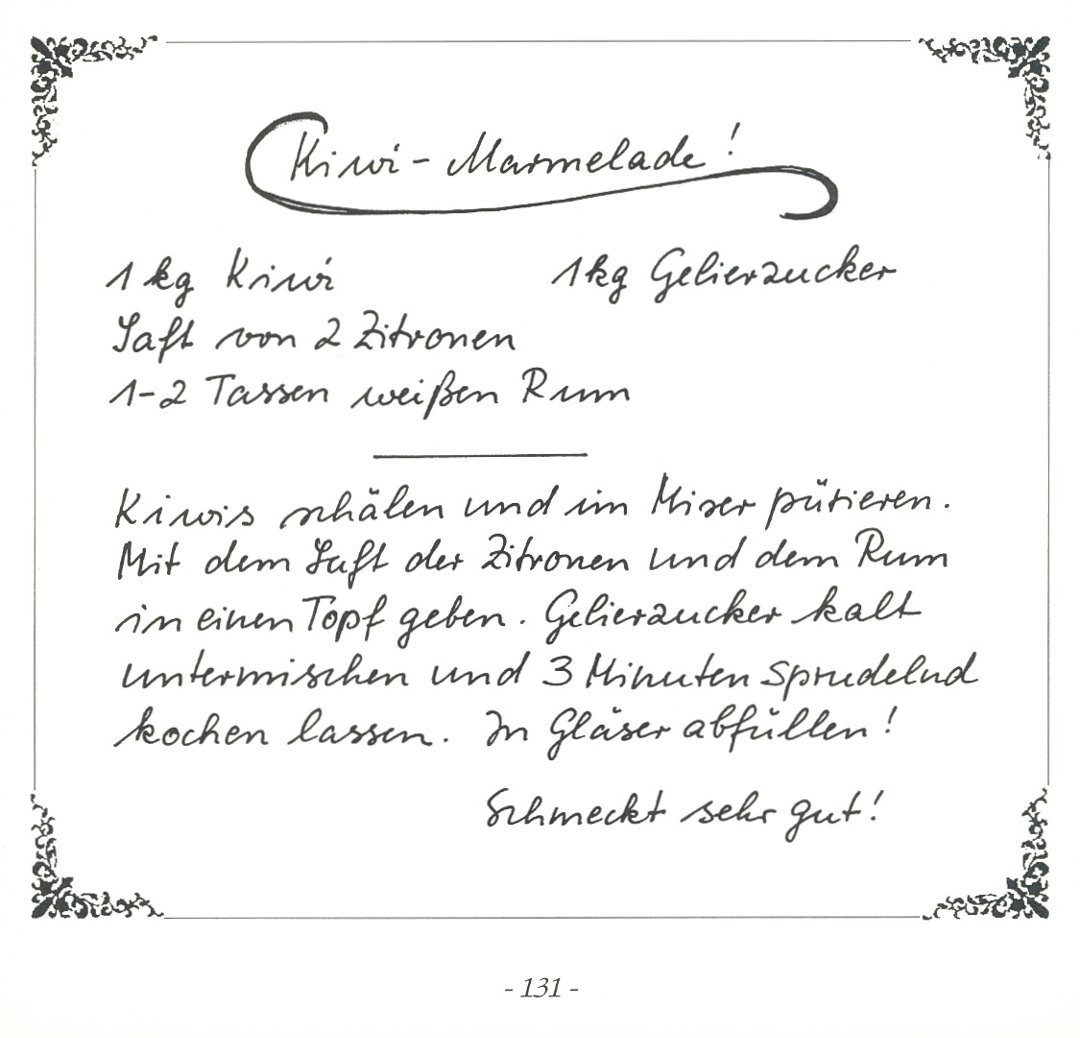 Kiwi-Marmelade!
1 kg Kiwi 1kg Gelierzucker
Saft von 2 Zitronen
1-2 Tassen weißen Rum
Kiwis schälen und im Mixer pürieren.
Mit dem Saft der Zitronen und dem Rum
in einen Topf geben. Gelierzucker kalt
untermischen und 3 Minuten sprudelnd
kochen lassen. In Gläser abfüllen!
Schmeckt sehr gut!
- 131 -